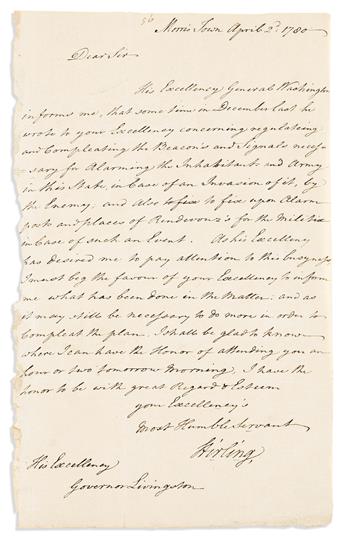 56
Morris Town April 2d. 1780
Dear Sir
His Excellency General Washington
informs me, that some time in December last he
wrote to your Excellency concerning regulating
and Compleating the Beacons and Signals neces-
sary for Alarming the Inhabitants and Army
in this State, in Case of an Invasion of it, by
the Enemy; and also to fix upon Alarm
posts and places of Rendevouz's for the Militia
in Case of such an Event. As his Excellency
has desired me to pay attention to this busyness
I must beg the favour of your Excellency to inform
me what has been done in the Matter: and as
it may still be necessary to do more in order to
compleat the plan. I shall be glad to know
where I can have the Honor of attending you an
hour or two tomorrow Morning, I have the
honor to be with great Regard & Esteem
your Excellency's
Most Humble Servant
Stirling,
His Excellency
Governor Livingston